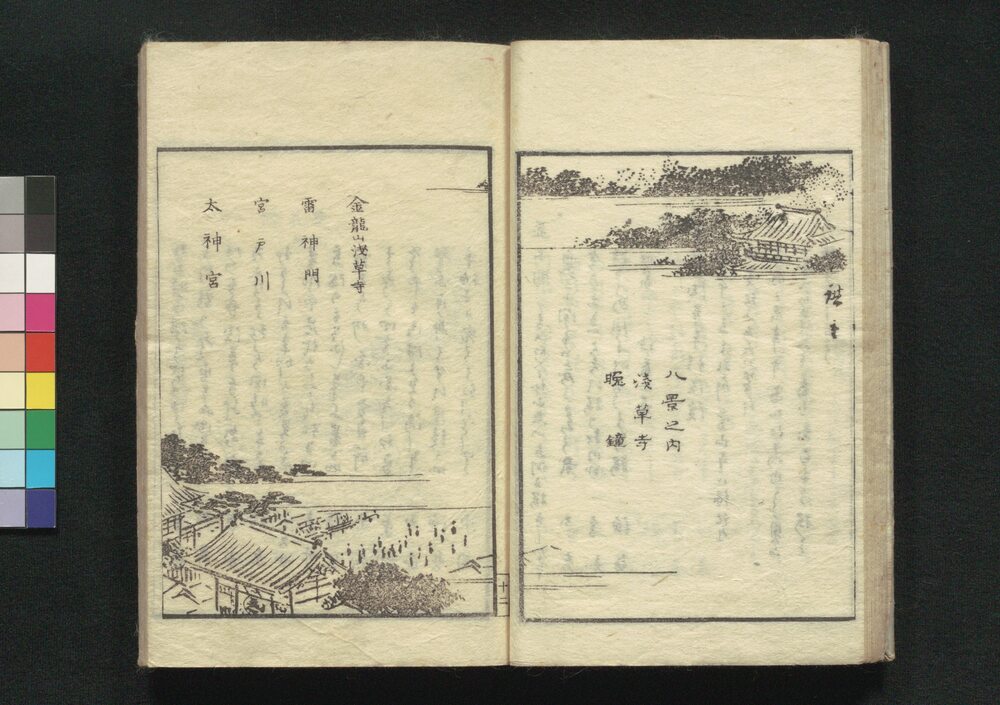 八景之内
淺草寺
晩鐘
金龍山浅草寺
雷神門
宮戸川
太神宮
十二